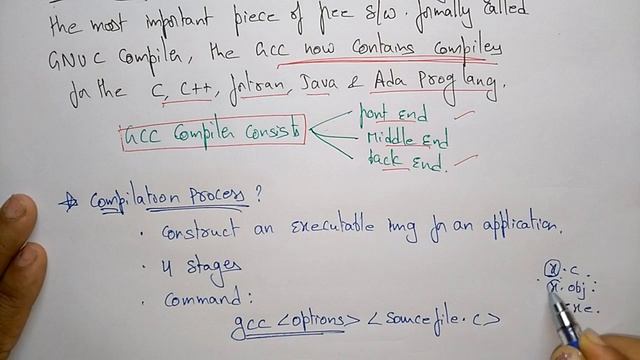 the most important piece of free s/w. formally called
GNU C Compiler, the Gcc now contains compiler
for the C, C++, fortran, Java & Ada Prog lang.
GCC Compiler Consists
front End
Middle End
back End.
Compilation Process?
· Construct an executable img for an application.
· 4 stages
· Command:
gcc <options> <source file.c>
x.c.
x.obj: